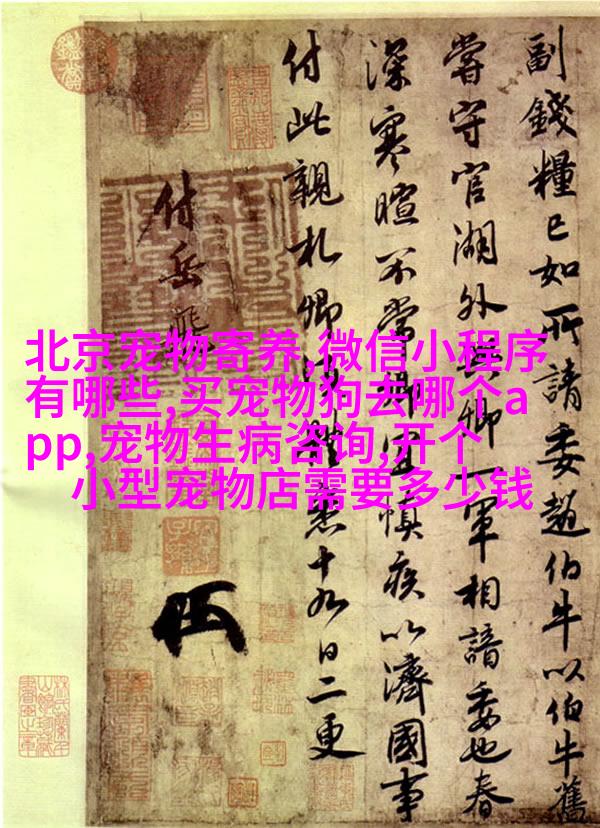 北京宠物寄养,微信小程序
有哪些,买宠物狗去哪个a
pp,宠物生病咨询,开个
小型宠物店需要多少钱
副錢糧已如所請委趙伯牛以伯牛舊
嘗守官湖外與卿一軍相諳委也春
深寒暄不常卿宜慎疾以濟國事
付此親札卿須體悉十九日二更
付岳飛